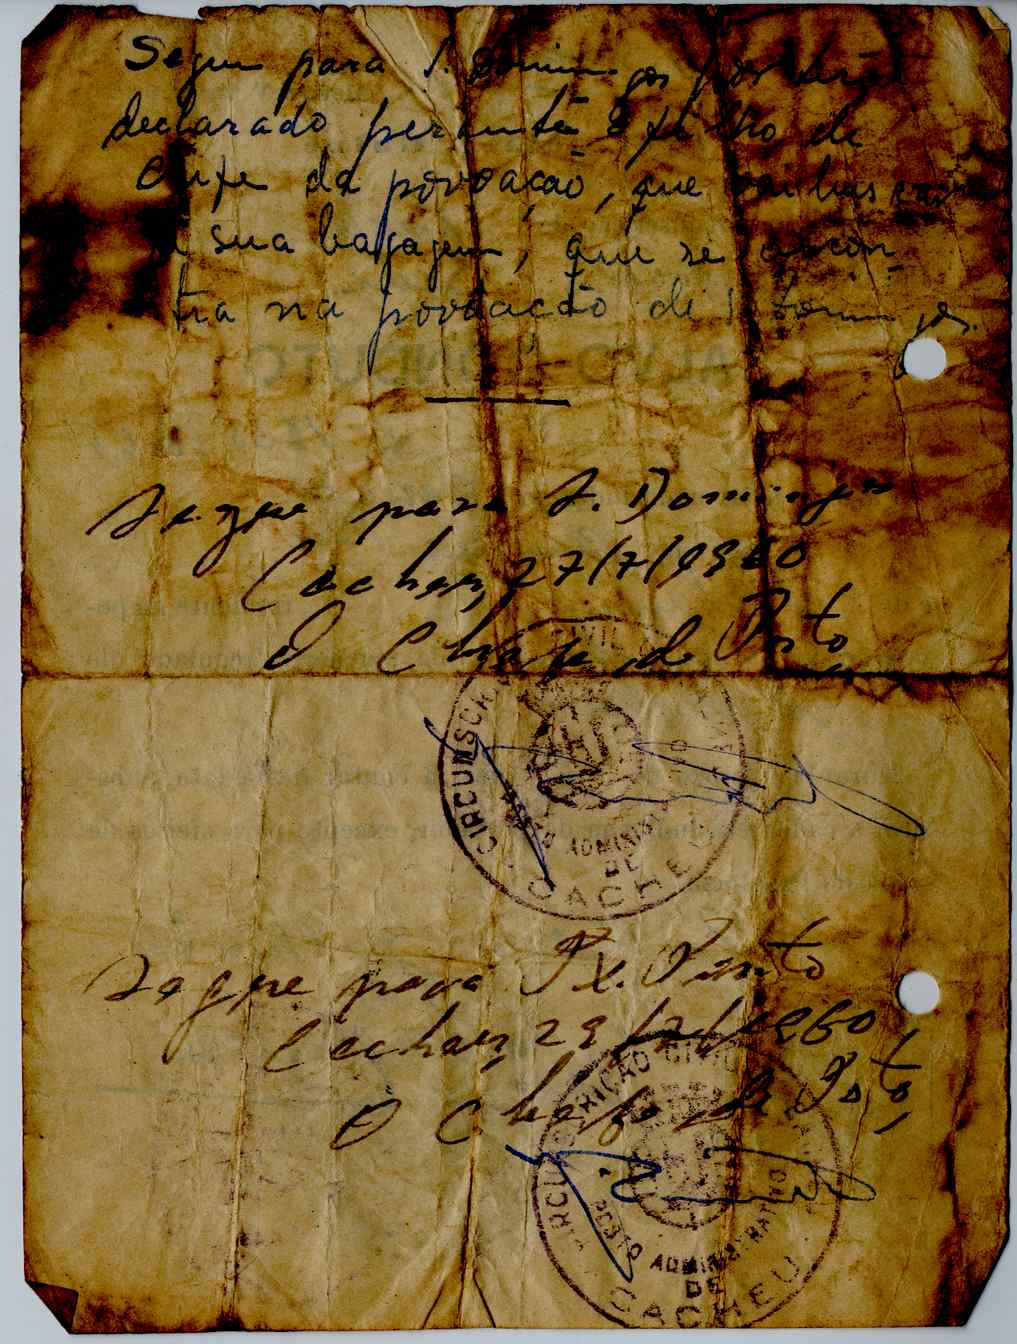 Segue para S. Domingos por ter
declarado perante o filho do
Chefe da povoação, que vai buscar
a sua bagagem, que se encon-
tra na povoação de S. Domingos.
Segue para S. Domingos
Cacheu, 27/7/1960
O Chefe de Posto,
CIRCUNSCRIÇÃO CIVIL
POSTO ADMINISTRATIVO
DE
CACHEU
Segue para Tx. Pinto
Cacheu, 29/7/1960
O Chefe de Posto,
CIRCUNSCRIÇÃO CIVIL
POSTO ADMINISTRATIVO
DE
CACHEU